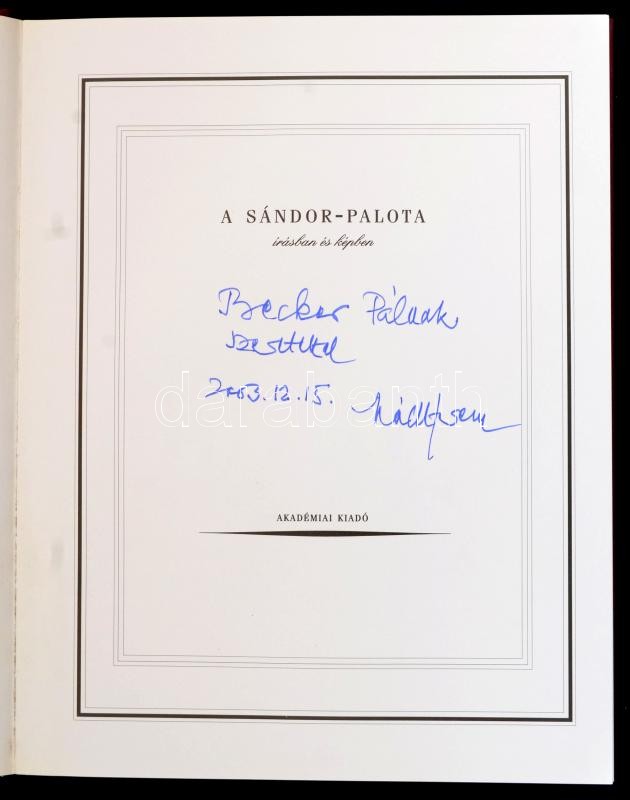 A SÁNDOR-PALOTA
írásban és képben
Becker Pálnak
szeretettel
2003.12.15.
darabanth
AKADÉMIAI KIADÓ